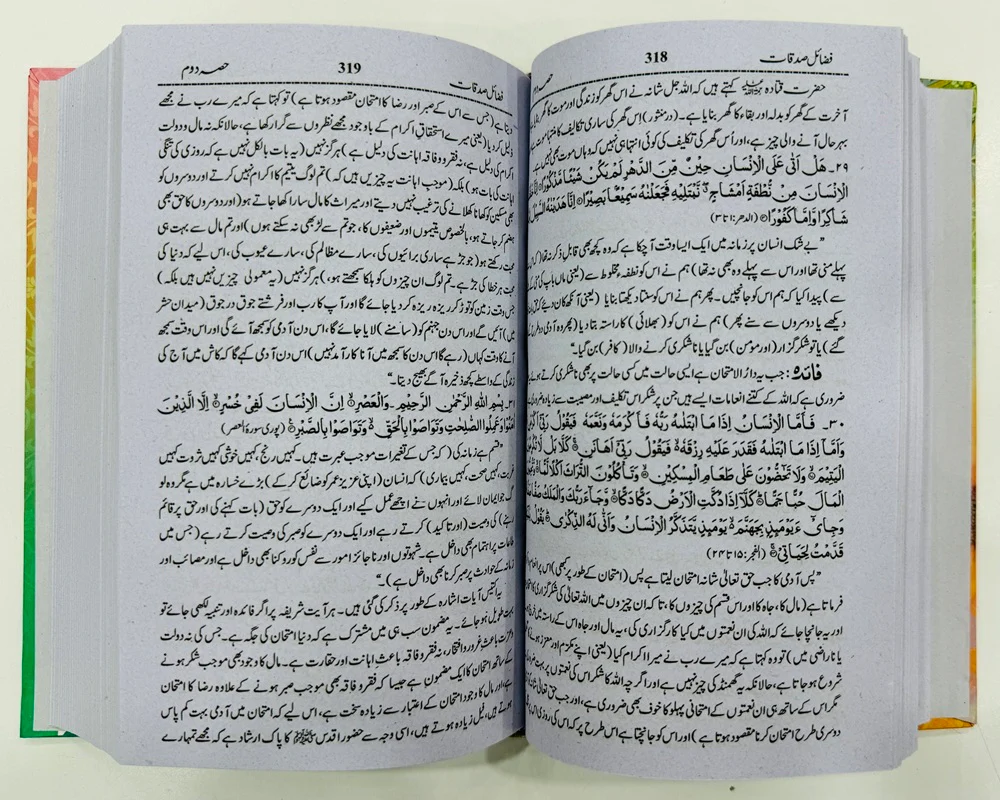 فضائل صدقات 318 حصہ دوم
حضرت قتادہ رحمۃ اللہ علیہ کہتے ہیں کہ اللہ جل شانہ نے اس گھر کو زندگی اور موت کا گھر بنایا
آخرت کے گھر کو بدلہ اور بقاء کا گھر بنایا ہے۔ (درمنثور) اِس گھر کی ساری تکالیف کا منتہا
بہر حال آنے والی چیز ہے، اور اُس گھر کی تکالیف کی کوئی انتہا ہی نہیں کہ وہاں موت بھی نہیں ہے۔
۲۹۔ هَلْ اَتٰى عَلَى الْاِنْسَانِ حِيْنٌ مِّنَ الدَّهْرِ لَمْ يَكُنْ شَيْئًا مَّذْكُوْرًا
الْاِنْسَانَ مِنْ نُّطْفَةٍ اَمْشَاجٍ نَّبْتَلِيْهِ فَجَعَلْنٰهُ سَمِيْعًا بَصِيْرًا اِنَّا هَدَيْنٰهُ السَّبِيْلَ
شَاكِرًا وَّاِمَّا كَفُوْرًا (الدھر: ۱ تا ۳)
”بے شک انسان پر زمانہ میں ایک ایسا وقت آچکا ہے کہ وہ کچھ بھی قابلِ ذکر نہ تھا (کہ اس
پہلے منی تھا اور اس سے پہلے وہ بھی نہ تھا) ہم نے اس کو نطفہ مخلوط سے (یعنی ماں باپ کی
سے) پیدا کیا کہ ہم اس کو جانچیں۔ پھر ہم نے اس کو سنتا دیکھتا بنایا (یعنی آنکھ کان دئیے کہ
دیکھے یا دوسروں سے سنے پھر) ہم نے اس کو (بھلائی) کا راستہ بتا دیا (پھر وہ آدمی دو طرح کے
گئے) یا تو شکر گزار (اور مومن) بن گیا یا ناشکری کرنے والا (کافر) بن گیا۔“
فائدہ: جب یہ دارُ الامتحان ہے ایسی حالت میں کسی حالت پر بھی ناشکری کرتے ہوئے
ضروری ہے کہ اللہ کے کتنے انعامات ایسے ہیں جن پر شکر اس تکلیف اور مصیبت سے زیادہ
۳۰۔ فَاَمَّا الْاِنْسَانُ اِذَا مَا ابْتَلٰىهُ رَبُّهٗ فَاَكْرَمَهٗ وَنَعَّمَهٗ فَيَقُوْلُ رَبِّيْٓ
وَاَمَّآ اِذَا مَا ابْتَلٰىهُ فَقَدَرَ عَلَيْهِ رِزْقَهٗ فَيَقُوْلُ رَبِّيْٓ اَهَانَنِ كَلَّا بَلْ لَّا تُكْرِمُوْنَ
الْيَتِيْمَ وَلَا تَحٰٓضُّوْنَ عَلٰى طَعَامِ الْمِسْكِيْنِ وَتَاْكُلُوْنَ التُّرَاثَ اَكْلًا لَّمًّا
الْمَالَ حُبًّا جَمًّا كَلَّآ اِذَا دُكَّتِ الْاَرْضُ دَكًّا دَكًّا وَّجَآءَ رَبُّكَ وَالْمَلَكُ صَفًّا
وَجِايْٓءَ يَوْمَئِذٍۢ بِجَهَنَّمَ يَوْمَئِذٍ يَّتَذَكَّرُ الْاِنْسَانُ وَاَنّٰى لَهُ الذِّكْرٰى يَقُوْلُ
قَدَّمْتُ لِحَيَاتِيْ (الفجر: ۱۵ تا ۲۴)
”پس آدمی کا جب حق تعالیٰ شانہ امتحان لیتا ہے پس (امتحان کے طور پر کبھی) اس پر
فرماتا ہے (مال کا، جاہ کا اور اس قسم کی چیزوں کا، تا کہ ان چیزوں میں اللہ تعالیٰ کی شکر گزاری کا
اور یہ جانچا جائے کہ اللہ کی ان نعمتوں میں کیا کار گزاری کی، یہ مال اور جاہ اس کے راستہ میں
یا ناراضی میں) تو وہ کہتا ہے کہ میرے رب نے میرا اکرام کیا (یعنی اپنے مکرم اور معزز ہونے
شروع ہو جاتا ہے، حالانکہ یہ گھمنڈ کی چیز نہیں ہے اور اگرچہ اللہ کا شکر اس کی نعمتوں پر بہت
مگر اس کے ساتھ ہی ان نعمتوں کے امتحانی پہلو کا خوف بھی ضروری ہے، اور جب حق تعالیٰ
دوسری طرح امتحان کرنا مقصود ہوتا ہے) اور اس کو جانچتا ہے اس طرح پر کہ اس کی روزی اس
فضائل صدقات 319 حصہ دوم
دیتا ہے (جس سے اس کے صبر اور رضا کا امتحان مقصود ہوتا ہے) تو کہتا ہے کہ میرے رب نے مجھے
ذلیل کر دیا (یعنی میرے استحقاقِ اکرام کے باوجود مجھے نظروں سے گرا رکھا ہے، حالانکہ نہ مال و دولت
اکرام کی دلیل ہے، نہ فقر و فاقہ اہانت کی دلیل ہے) ہرگز نہیں (یہ بات بالکل نہیں ہے کہ روزی کی تنگی
اہانت کی بات ہو) بلکہ (موجبِ اہانت یہ چیزیں ہیں کہ) تم لوگ یتیم کا اکرام نہیں کرتے اور دوسروں کو
بھی مسکین کو کھانا کھلانے کی ترغیب نہیں دیتے اور میراث کا مال سارا کھا جاتے ہو (اور دوسروں کا حق بھی
ہضم کر جاتے ہو، بالخصوص یتیموں اور ضعیفوں کا، جو تم سے لڑ بھی نہ سکتے ہوں) اور تم مال سے بہت ہی
محبت رکھتے ہو (جو جڑ ہے ساری برائیوں کی، سارے مظالم کی، سارے عیوب کی، اس لیے کہ دنیا کی
محبت ہر خطا کی جڑ ہے۔ تم لوگ ان چیزوں کو ہلکا سمجھتے ہو) ہرگز نہیں (یہ معمولی چیزیں نہیں ہیں بلکہ)
جس وقت زمین کو توڑ کر ریزہ ریزہ کر دیا جائے گا اور آپ کا رب اور فرشتے جوق در جوق (میدانِ حشر
میں) آئیں گے اور اس دن جہنم کو (سامنے) لایا جائے گا، اس دن آدمی کو سمجھ آئے گی اور اس وقت سمجھ
آنے کا وقت کہاں (رہے گا اس دن کا سمجھ میں آنا کار آمد نہیں) اس دن آدمی کہے گا کہ کاش میں آج کی
زندگی کے واسطے کچھ ذخیرہ آگے بھیج دیتا۔“
۳۱۔ بِسْمِ اللّٰهِ الرَّحْمٰنِ الرَّحِيْمِ۔ وَالْعَصْرِ اِنَّ الْاِنْسَانَ لَفِيْ خُسْرٍ اِلَّا الَّذِيْنَ
اٰمَنُوْا وَعَمِلُوا الصّٰلِحٰتِ وَتَوَاصَوْا بِالْحَقِّ وَتَوَاصَوْا بِالصَّبْرِ (پوری سورۂ العصر)
”قسم ہے زمانہ کی (کہ جس کے تغیرات موجبِ عبرت ہیں۔ کہیں رنج، کہیں خوشی کہیں ثروت کہیں
غربت، کہیں صحت، کہیں بیماری) کہ انسان (اپنی عزیز عمر کو ضائع کر کے) بڑے خسارہ میں ہے مگر وہ لوگ
جو ایمان لائے اور انہوں نے اچھے عمل کیے اور ایک دوسرے کو حق (بات کہنے کی اور حق پر قائم
رہنے) کی وصیت (اور تاکید) کرتے رہے اور ایک دوسرے کو صبر کی وصیت کرتے رہے (جس میں
طاعات پر اہتمام بھی داخل ہے۔ شہوتوں اور ناجائز امور سے نفس کو روکنا بھی داخل ہے اور مصائب اور
زمانہ کے حوادث پر صبر کرنا بھی داخل ہے)۔“
یہ اکتیس آیات اشارہ کے طور پر ذکر کی گئی ہیں۔ ہر آیت شریفہ پر اگر فائدہ اور تنبیہ لکھی جائے تو
بہت طویل ہو جائے۔ یہ مضمون سب ہی میں مشترک ہے کہ دنیا امتحان کی جگہ ہے۔ جس کی نہ دولت
و عزت باعثِ غرور و افتخار، نہ فقر و فاقہ باعثِ اہانت اور حقارت ہے۔ مال کا وجود بھی موجبِ شکر ہونے
کے ساتھ امتحان کا ایک مضمون ہے جیسا کہ فقر و فاقہ بھی موجبِ صبر ہونے کے علاوہ رضا کا امتحان
ہے، اور مال کا وجود امتحان کے اعتبار سے زیادہ سخت ہے، اس لیے کہ امتحان میں آدمی بہت کم پاس
ہوتے ہیں، فیل زیادہ ہوتے ہیں، اسی وجہ سے حضور اقدس ﷺ کا پاک ارشاد ہے کہ مجھے تمہارے